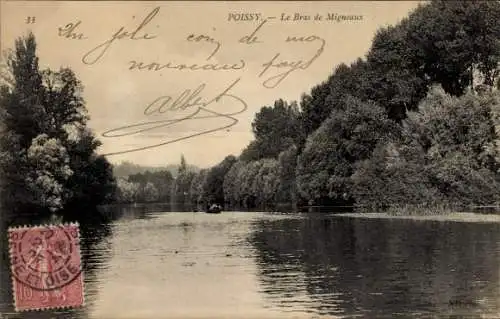 33
POISSY. — Le Bras de Migneaux
Un joli coin de mon
nouveau pays
Albert
10
ND